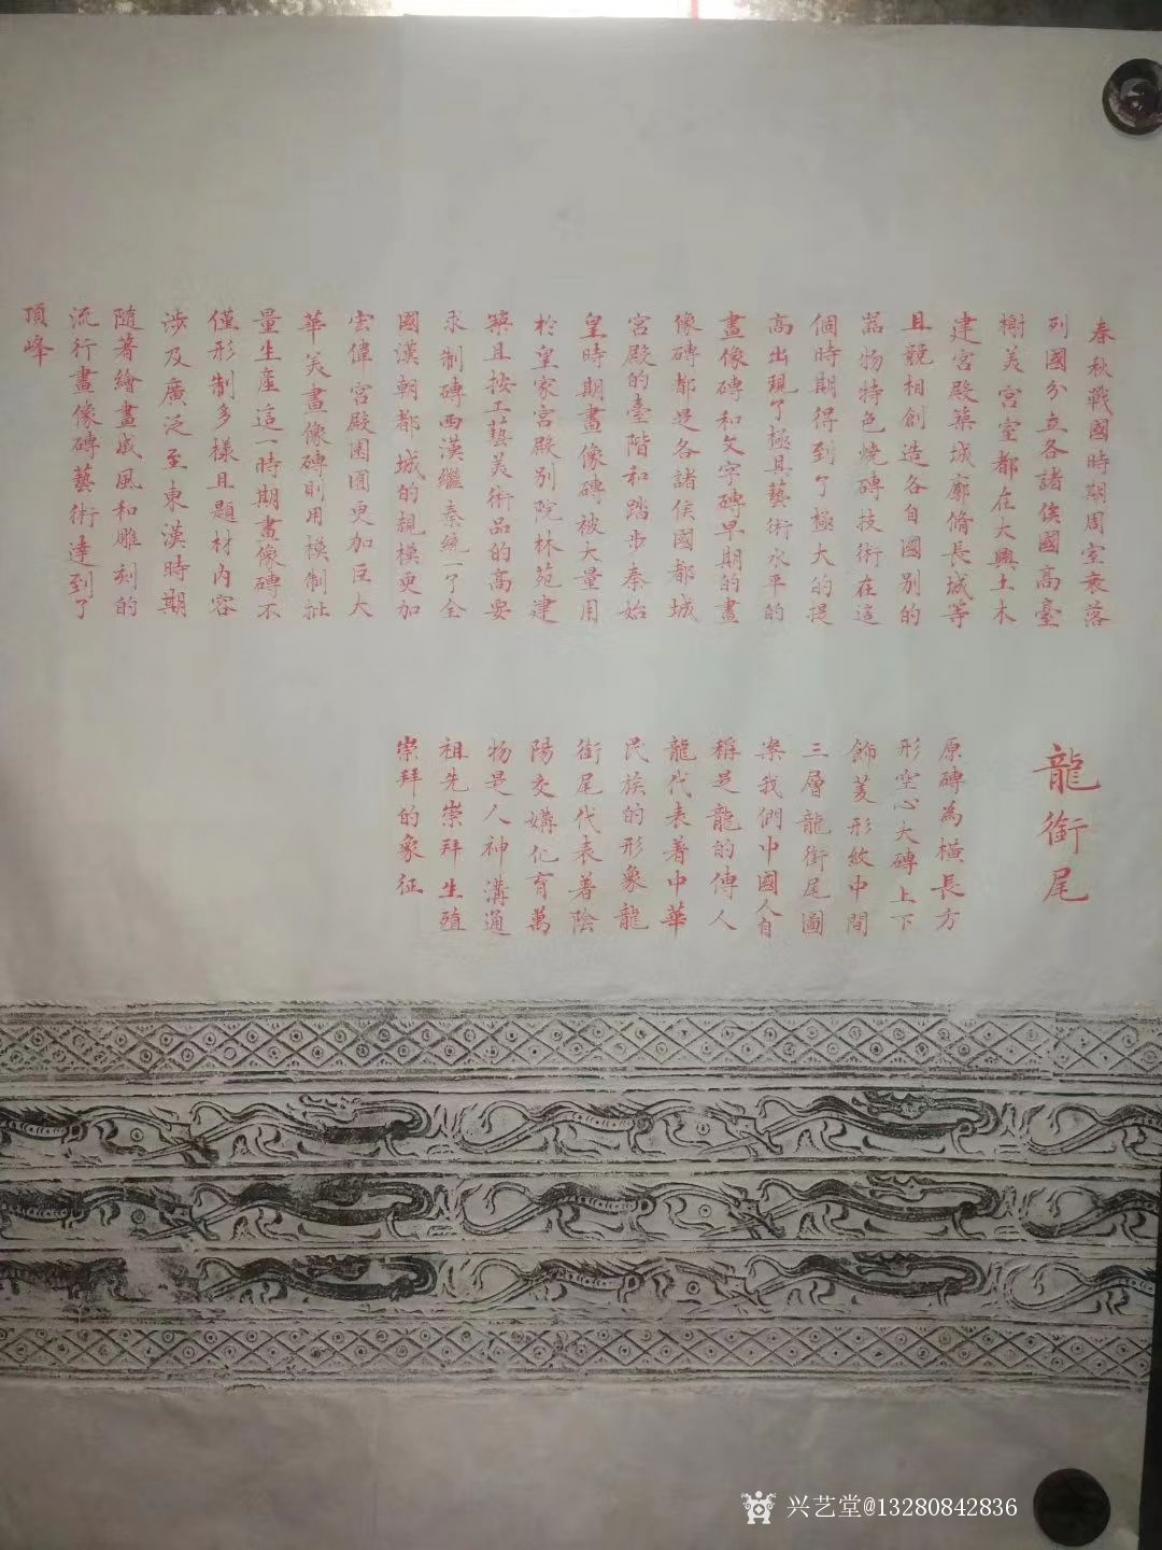 春秋戰國時期周室衰落
列國分立各諸侯國高臺
榭美宮室都在大興土木
建宮殿築城廓脩長城等
且競相創造各自國別的
器物特色燒磚技術在這
個時期得到了極大的提
高出現了極具藝術水平的
畫像磚和文字磚早期的畫
像磚都是各諸侯國都城
宮殿的臺階和踏步秦始
皇時期畫像磚被大量用
於皇家宮殿別院林苑建
築且按工藝美術品的高要
求制磚西漢繼秦統一了全
國漢朝都城的規模更加
宏偉宮殿園囿更加巨大
華美畫像磚則用模制批
量生產這一時期畫像磚不
僅形制多樣且題材內容
涉及廣泛至東漢時期
隨著繪畫成風和雕刻的
流行畫像磚藝術達到了
頂峰
龍銜尾
原磚為橫長方
形空心大磚上下
飾菱形紋中間
三層龍銜尾圖
案我們中國人自
稱是龍的傳人
龍代表著中華
民族的形象龍
銜尾代表著陰
陽交媾化育萬
物是人神溝通
祖先崇拜生殖
崇拜的象征
兴艺堂@13280842836